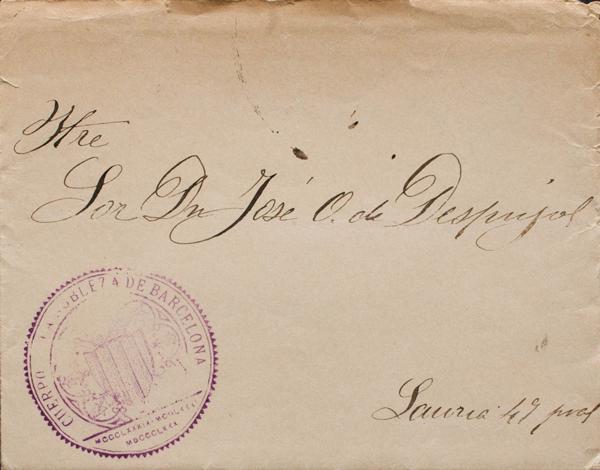 Iltre
Sor Dn José O. de Despujol
CUERPO LA NOBLEZA DE BARCELONA
MDCCCLXXX
Lauria 47 pral